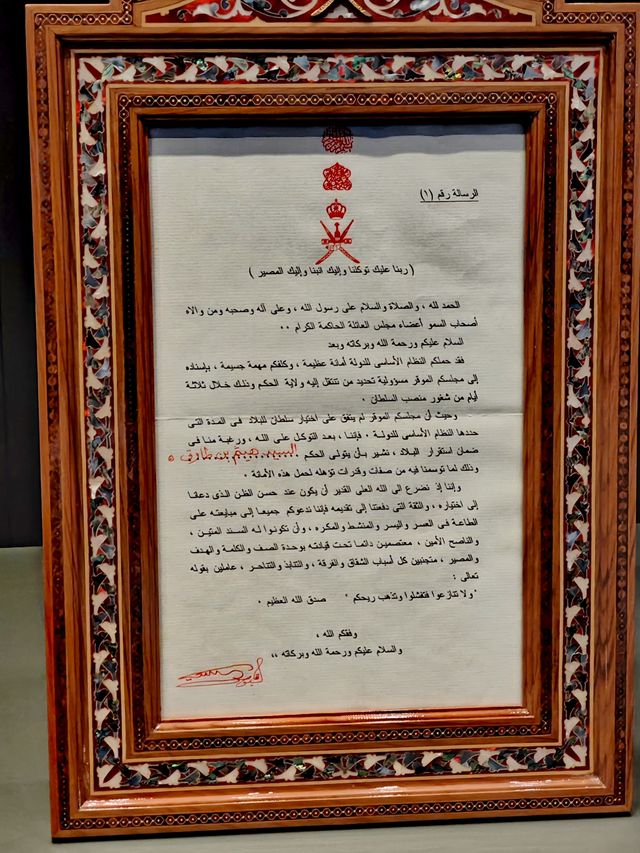 الرسالة رقم (١)
( ربنا عليك توكلنا وإليك أنبنا وإليك المصير )
الحمد لله ، والصلاة والسلام على رسول الله ، وعلى آله وصحبه ومن والاه
أصحاب السمو أعضاء مجلس العائلة الحاكمة الكرام ٠٠
السلام عليكم ورحمة الله وبركاته وبعد
فقد حملكم النظام الأساسى للدولة أمانة عظيمة ، وكلفكم مهمة جسيمة ، بإسناده
إلى مجلسكم الموقر مسؤولية تحديد من تنتقل إليه ولاية الحكم وذلك خلال ثلاثة
أيام من شغور منصب السلطان ٠
وحيث أن مجلسكم الموقر لم يتفق على اختيار سلطان للبلاد فى المدة التى
حددها النظام الأساسى للدولة ٠ فإننا ، بعد التوكل على الله ، ورغبة منا فى
ضمان استقرار البلاد ، نشير بأن يتولى الحكم السيد هيثم بن طارق ٠
وذلك لما توسمنا فيه من صفات وقدرات تؤهله لحمل هذه الأمانة ٠
وإننا إذ نضرع الى الله العلى القدير أن يكون عند حسن الظن الذى دعانا
إلى اختياره ، والثقة التى دفعتنا إلى تقديمه فإننا ندعوكم جميعا إلى مبايعته على
الطاعة فى العسر واليسر والمنشط والمكره ، وأن تكونوا له السند المتين ،
والناصح الأمين ، معتصمين دائما تحت قيادته بوحدة الصف والكلمة والهدف
والمصير ، متجنبين كل أسباب الشقاق والفرقة ، والتنابذ والتناحر ، عاملين بقوله
تعالى :
"ولا تنازعوا فتفشلوا وتذهب ريحكم" صدق الله العظيم ٠
وفقكم الله ،
والسلام عليكم ورحمة الله وبركاته ،،